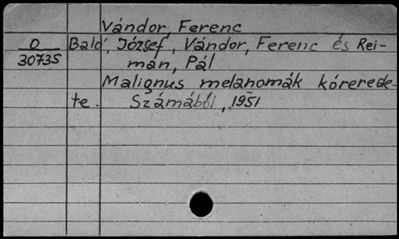 Vándor, Ferenc
O Baló, József, Vándor, Ferenc és Rei-
30735 mán, Pál
Malignus melanomák kórerede-
te. Számából, 1951